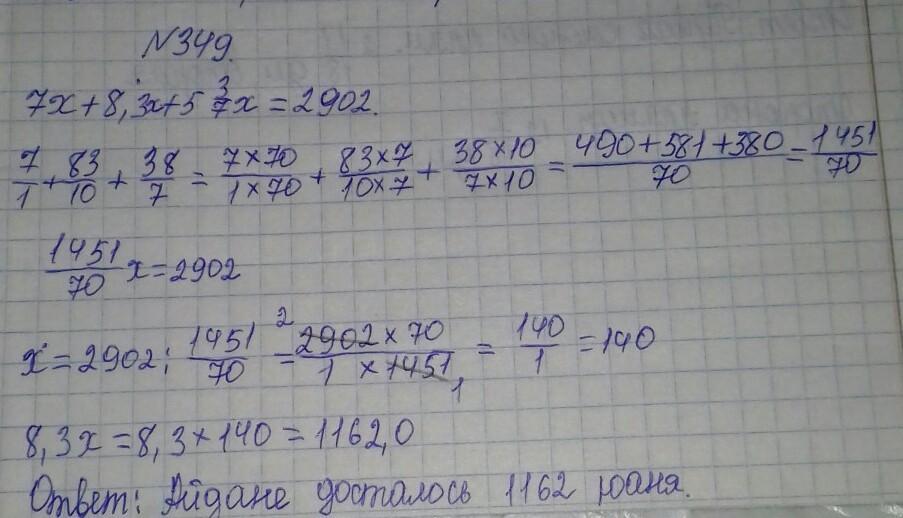 N349.
7x+8,3x+5 3/7x=2902.
7/1+83/10+38/7=7×70/1×70+83×7/10×7+38×10/7×10=490+581+380/70=1451/70
1451/70x=2902
x=2902:1451/70=2902×70/1×1451=140/1=140
8,3x=8,3×140=1162,0
Ответ: Айдане досталось 1162 юаня.